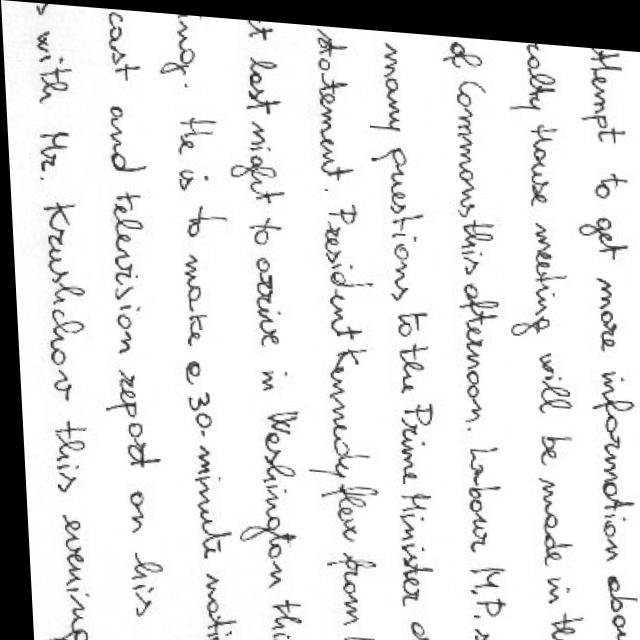 ttempt to get more information abou
ralty House meeting will be made in th
of Commons this afternoon. Labour M.P.s
many questions to the Prime Minister a
statement. President Kennedy flew from
t last night to arrive in Washington thi
ing. He is to make a 30-minute nati
cast and television report on his
s with Mr. Krushchov this evening